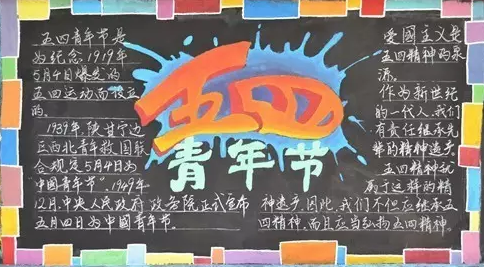 五四青年节是
为纪念1919年
5月4日爆发的
五四运动而设立
的。
1939年,陕甘宁边
区西北青年救国联
合规定5月4日为
中国青年节"。1949年
12月,中央人民政府政务院正式宣布
五月四日为中国青年节。
五四
青年节
爱国主义是
五四精神的泉
源。
作为新世纪
的一代人,我们
有责任继承先
辈的精神遗产
五四精神就
属于这样的精
神遗产,因此,我们不但应继承五
四精神,而且应当弘扬五四精神。